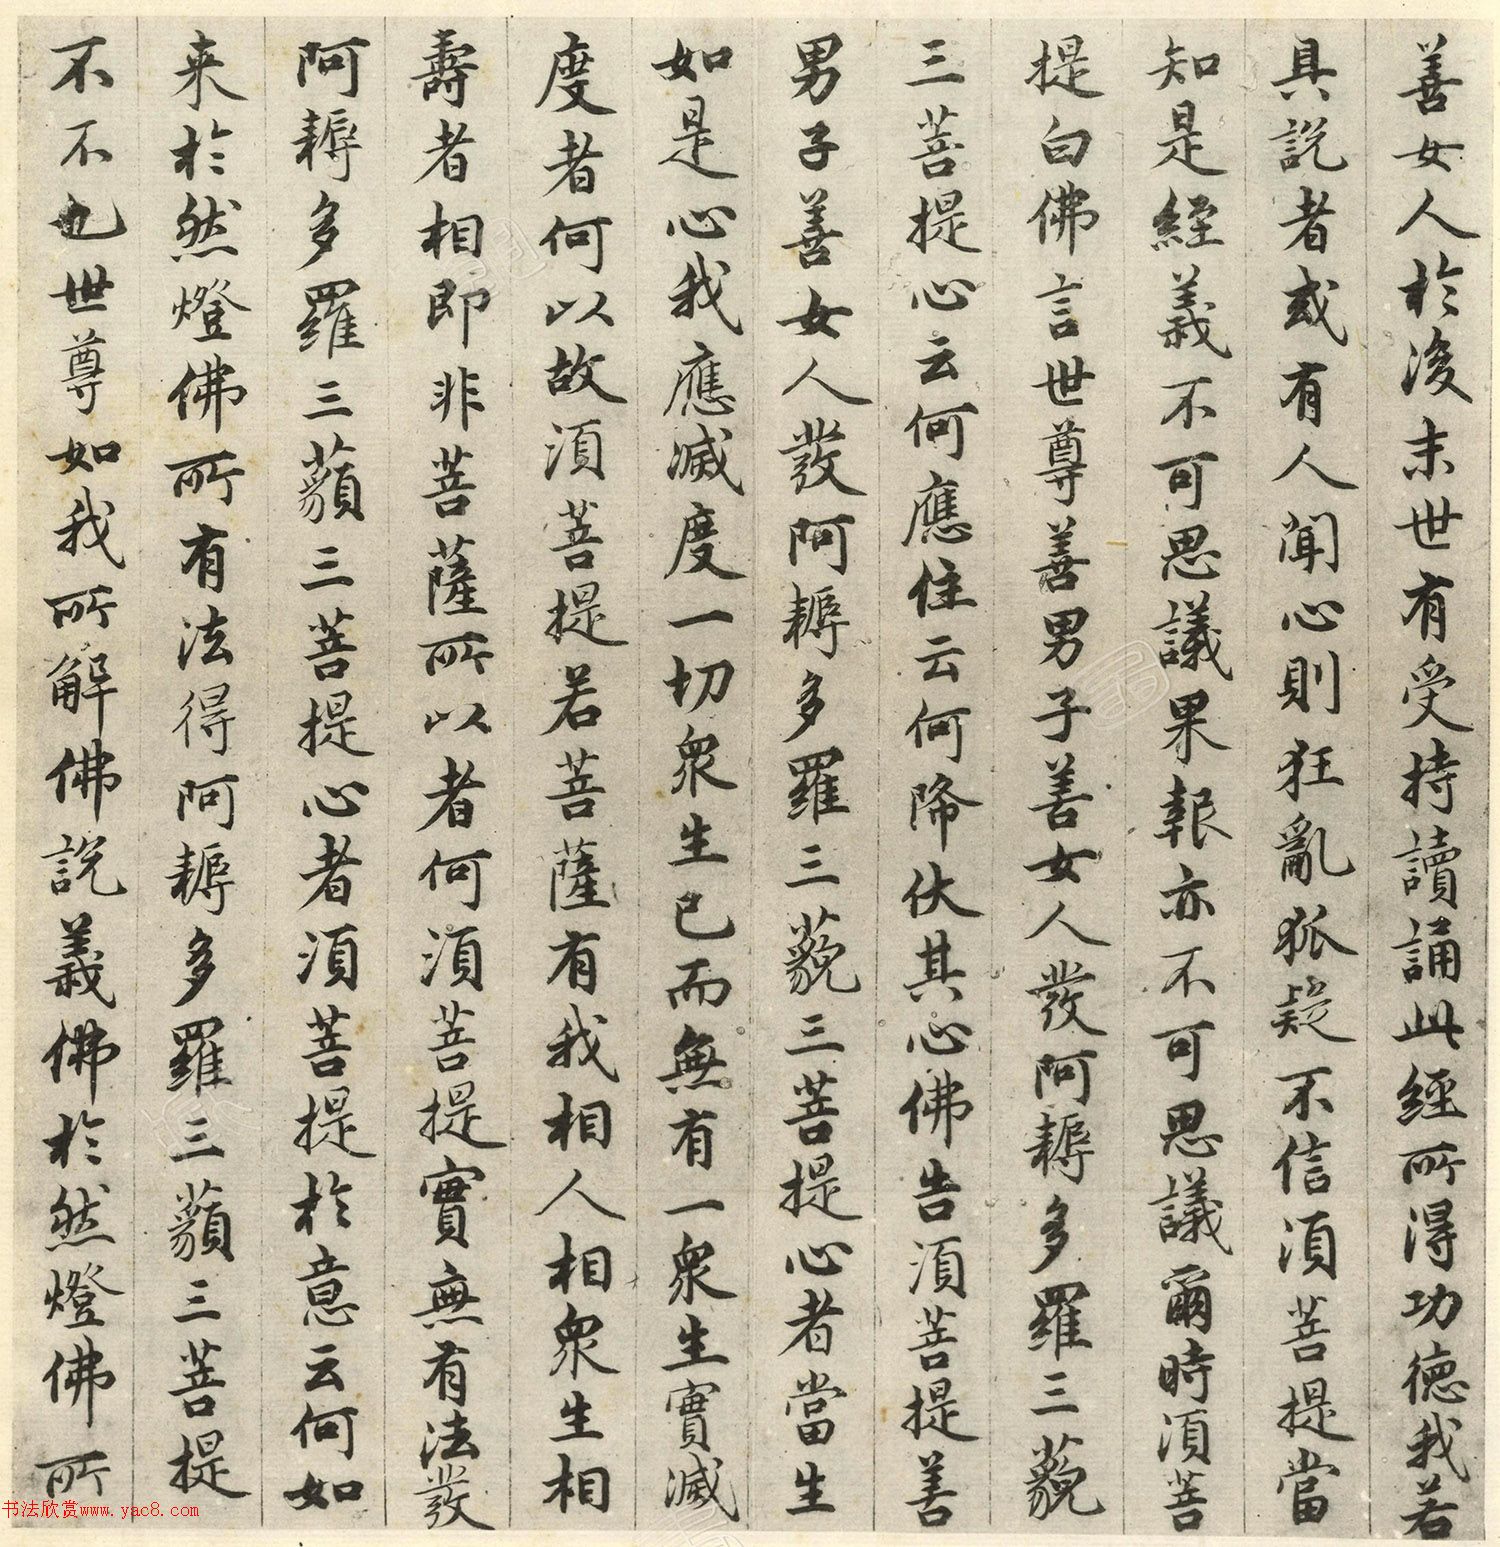 善女人於後末世有受持讀誦此經所得功德我若
具說者或有人聞心則狂亂狐疑不信須菩提當
知是經義不可思議果報亦不可思議爾時須菩
提白佛言世尊善男子善女人發阿耨多羅三藐
三菩提心云何應住云何降伏其心佛告須菩提善
男子善女人發阿耨多羅三藐三菩提心者當生
如是心我應滅度一切眾生已而無有一眾生實滅
度者何以故須菩提若菩薩有我相人相眾生相
壽者相即非菩薩所以者何須菩提實無有法發
阿耨多羅三藐三菩提心者須菩提於意云何如
来於然燈佛所有法得阿耨多羅三藐三菩提
不不也世尊如我所解佛說義佛於然燈佛所
书法欣赏www.yac8.com